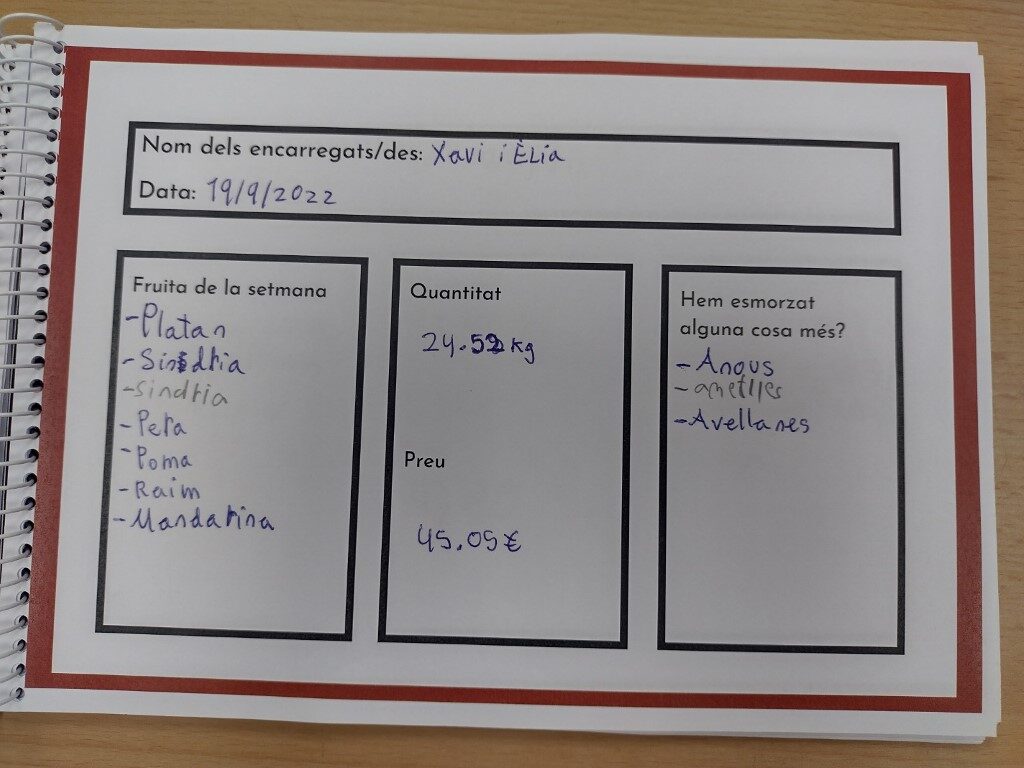 Nom dels encarregats/des: Xavi i Èlia
Data: 19/9/2022
Fruita de la setmana
-Platan
-Sindria
-sindria
-Pera
-Poma
-Raim
-Mandarina
Quantitat
24.52 kg
Preu
45.05€
Hem esmorzat
alguna cosa més?
-Anous
-ametlles
-Avellanes